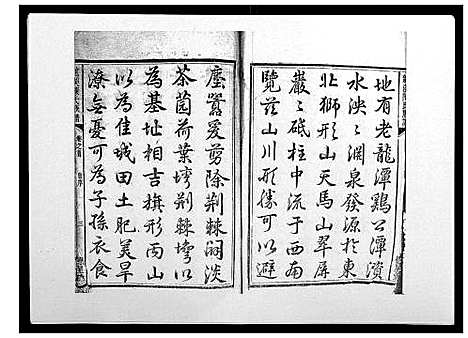 地有老龍潭鷄公潭濱
水泱泱淵泉發源於東
北獅形山天馬山翠屏
巖巖砥柱中流于西南
覽茲山川形勝可以避
塵囂爰剪除荆棘闢淡
茶園荷葉塆荆棘塆以
為基址相吉旗形丙山
以為佳城田土肥美旱
潦無憂可為子孫衣食